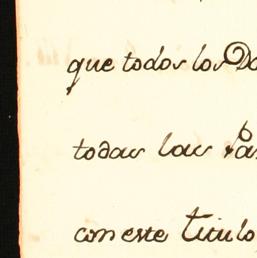 que todos los Do
todas las Pa
con este titulo